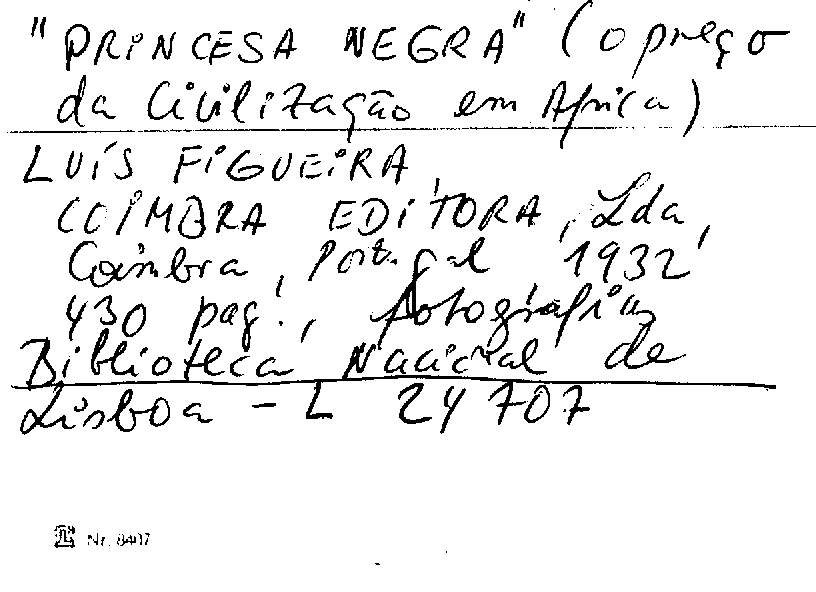 "PRINCESA NEGRA" (o preço
da Civilização em Africa)
LUÍS FIGUEIRA,
COIMBRA EDITORA, Lda,
Coimbra, Portugal 1932,
430 pag., fotografias
Biblioteca Nacional de
Lisboa - L 24 707
Nr. 8407